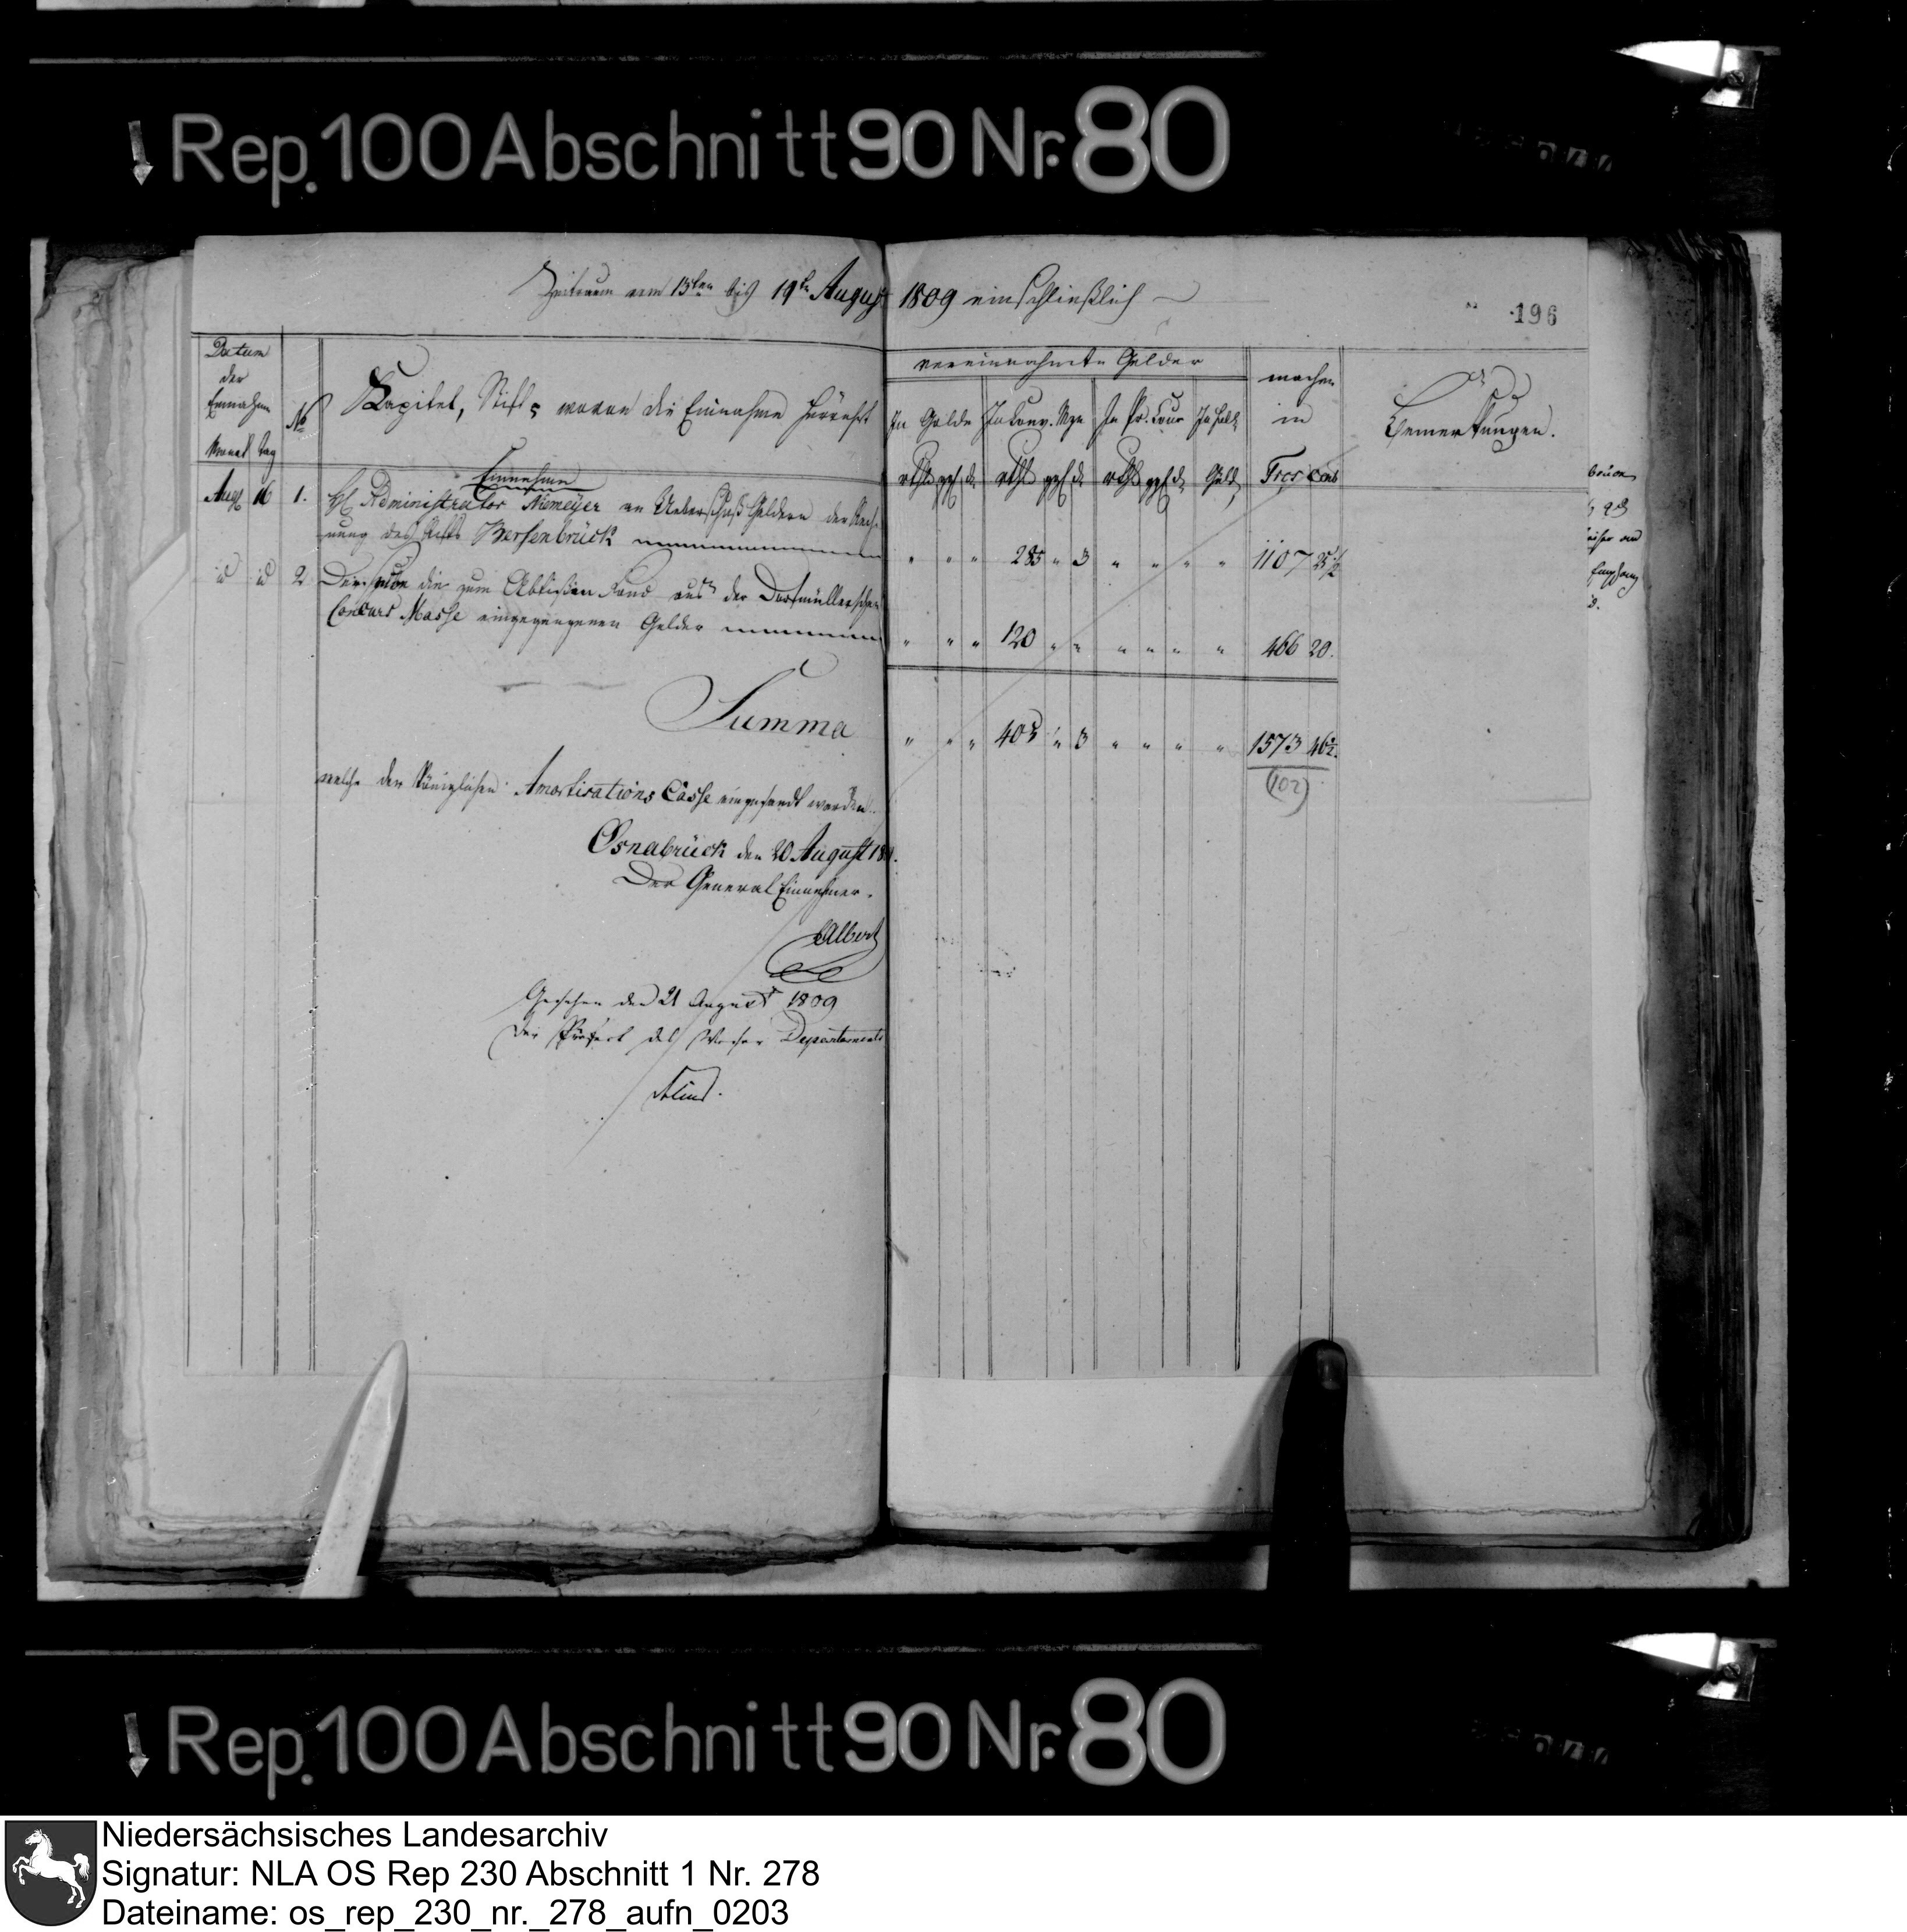 Rep. 100 Abschnitt 90 Nr. 80
Zeitraum vom 15ten bis 19ten August 1809 einschließlich
196
Datum der Einnahme
Monat Tag
No
Kapitel, Stift, wovon die Einnahme herrührt
vereinnahmte Gelder
In Golde In Conv. Mze In Pr. Cour
rthlr ggl d rthlr ggl d rthlr ggl d
machen in
Frcs Cent
Bemerkungen.
Einnahme
Aug 16 1. H. Administrator Niemeyer an Ueberschuß Geldern der Rech-
nung des Stifts Bersenbrück
" " " 285 " 3 " " " " 1107 25 1/2
id id 2 Derselbe die zum Abtißin Fond aus der Dorfmüllerschen
Concurs Masse eingegangenen Gelder
" " " 120 " " " " " " 466 20.
Summa
" " " 405 " 3 " " " " 1573 46 1/2.
(102)
welche der Königlichen Amortisations Casse eingesandt worden.
Osnabrück den 20 August
Der General Einnehmer.
Albert
Gesehen den 21 August 1809
Der Präfect des Weser Departements
Rep. 100 Abschnitt 90 Nr. 80
Niedersächsisches Landesarchiv
Signatur: NLA OS Rep 230 Abschnitt 1 Nr. 278
Dateiname: os_rep_230_nr._278_aufn_0203